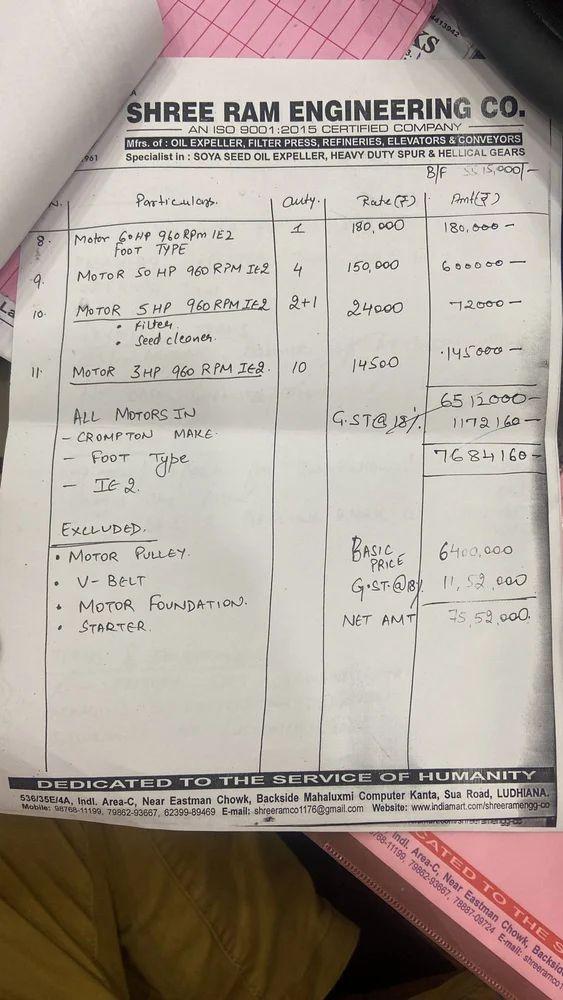 4413942
KS
3.
La
961
SHREE RAM ENGINEERING CO.
AN ISO 9001:2015 CERTIFIED COMPANY
Mfrs. of : OIL EXPELLER, FILTER PRESS, REFINERIES, ELEVATORS & CONVEYORS
Specialist in : SOYA SEED OIL EXPELLER, HEAVY DUTY SPUR & HELLICAL GEARS
B/F 5515,000/-
N. Particulars. Quty. Rate(₹) Amt(₹)
8. Motor 60HP 960 RPm IE2 1 180,000 180,000-
FOOT TYPE
9. MOTOR 50 HP 960 RPM IE2 4 150,000 600000-
10. MOTOR 5HP 960 RPM IE2 2+1 24000 72000-
• Filter.
• Seed cleaner.
11. MOTOR 3HP 960 RPM IE2. 10 14500 145000-
6512000-
ALL MOTORS IN G.ST@18% 1172160-
- CROMPTON MAKE.
- FOOT Type 7684160-
- IE2.
EXCLUDED.
• MOTOR PULLEY. BASIC PRICE 6400,000
• V-BELT G.ST.@18% 11,52,000
• MOTOR FOUNDATION.
• STARTER. NET AMT 75,52,000.
DEDICATED TO THE SERVICE OF HUMANITY
536/35E/4A, Indl. Area-C, Near Eastman Chowk, Backside Mahaluxmi Computer Kanta, Sua Road, LUDHIANA.
Mobile: 98768-11199, 79862-93667, 62399-89469 E-mail: shreeramco1176@gmail.com Website: www.indiamart.com/shreeramengg-co
CATED TO THE S
Indl. Area-C, Near Eastman Chowk, Backside
768-11199, 79862-93667, 78887-09724 E-mail: shreeramco1